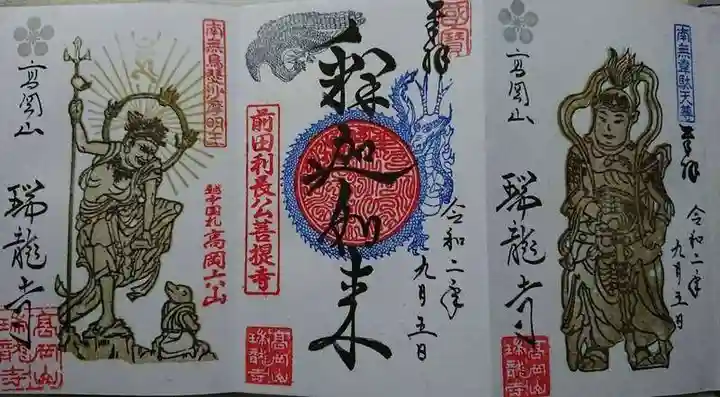 奉拝
南無韋駄天尊
高岡山
瑞龍寺
令和二年
九月五日
高岡山
瑞龍寺
國寶
奉拝
釈迦如来
前田利長公菩提寺
令和二年
九月五日
高岡山
瑞龍寺
南無烏瑟沙摩明王
高岡山
瑞龍寺
越中国札
高岡山
瑞龍寺